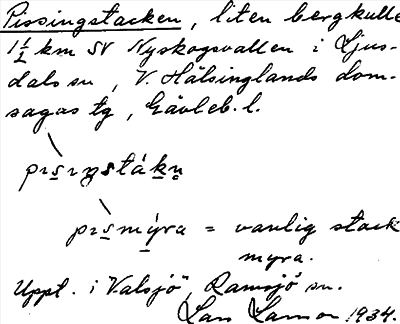 Pissingstacken, liten bergkulle
1½ km SV Nyskogsvallen i Ljus-
dals sn, V. Hälsinglands dom-
sagas tg, Gävleb. l.
pɪsɪŋstákn̥
pɪsmýra = vanlig stack
myra.
Uppt. i "Valsjö", Ramsjö sn.
1934.